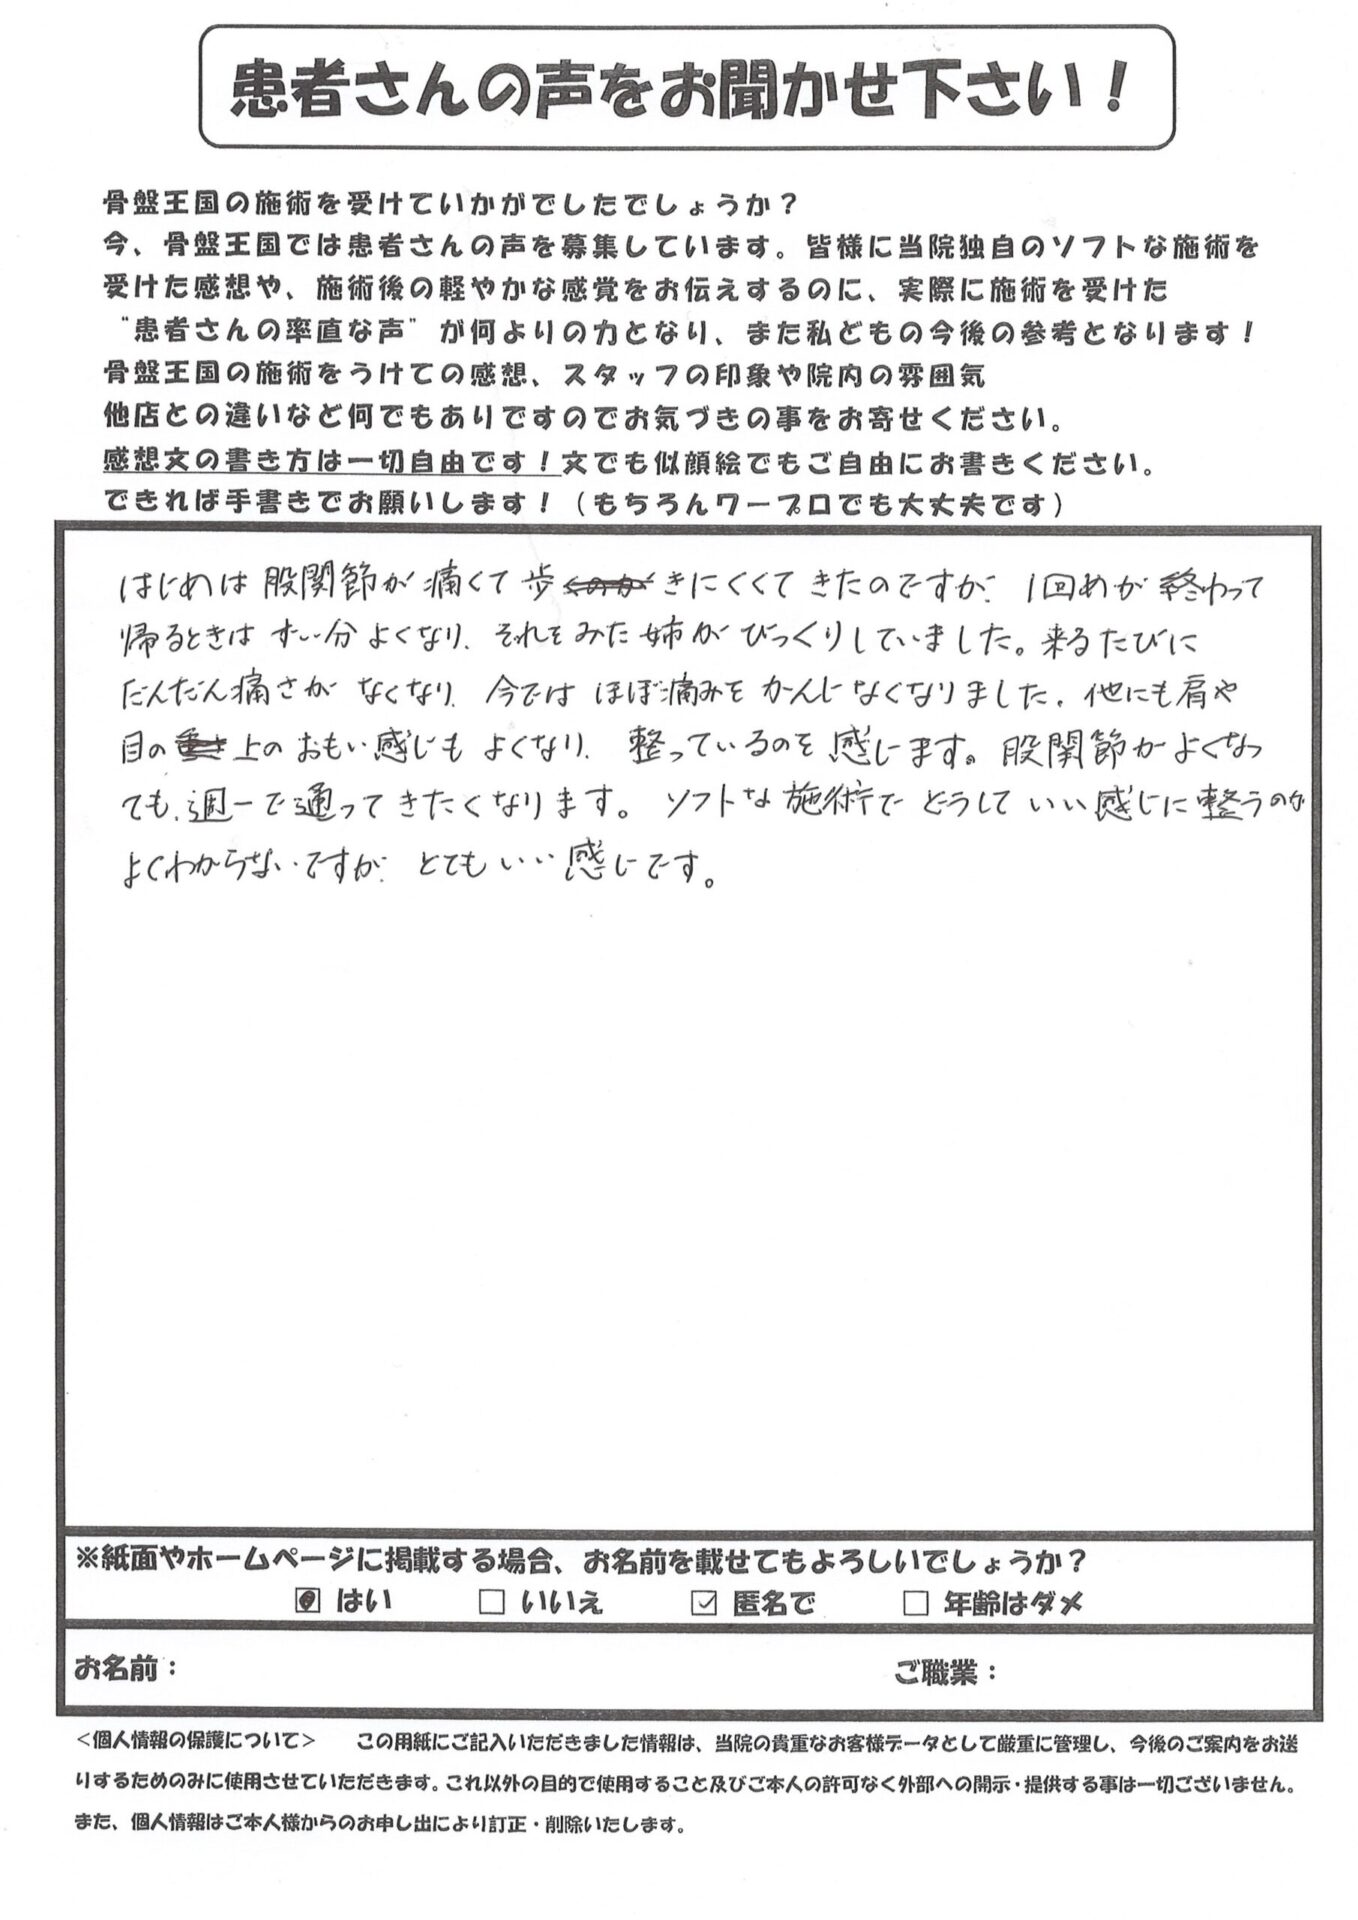 患者さんの声をお聞かせ下さい！
骨盤王国の施術を受けていかがでしたでしょうか？
今、骨盤王国では患者さんの声を募集しています。皆様に当院独自のソフトな施術を
受けた感想や、施術後の軽やかな感覚をお伝えするのに、実際に施術を受けた
“患者さんの率直な声”が何よりの力となり、また私どもの今後の参考となります！
骨盤王国の施術をうけての感想、スタッフの印象や院内の雰囲気
他店との違いなど何でもありですのでお気づきの事をお寄せください。
感想文の書き方は一切自由です！文でも似顔絵でもご自由にお書きください。
できれば手書きでお願いします！（もちろんワープロでも大丈夫です）
はじめは股関節が痛くて歩きにくくてきたのですが、1回めが終わって
帰るときはずい分よくなり、それをみた姉がびっくりしていました。来るたびに
だんだん痛さがなくなり、今ではほぼ痛みをかんじなくなりました。他にも肩や
目の上のおもい感じもよくなり、整っているのを感じます。股関節がよくなっ
ても、週一で通ってきたくなります。ソフトな施術でどうしていい感じに整うのか
よくわからないですが、とてもいい感じです。
※紙面やホームページに掲載する場合、お名前を載せてもよろしいでしょうか？
はい □ いいえ ☑ 匿名で □ 年齢はダメ
お名前： ご職業：
＜個人情報の保護について＞ この用紙にご記入いただきました情報は、当院の貴重なお客様データとして厳重に管理し、今後のご案内をお送
りするためのみに使用させていただきます。これ以外の目的で使用すること及びご本人の許可なく外部への開示・提供する事は一切ございません。
また、個人情報はご本人様からのお申し出により訂正・削除いたします。